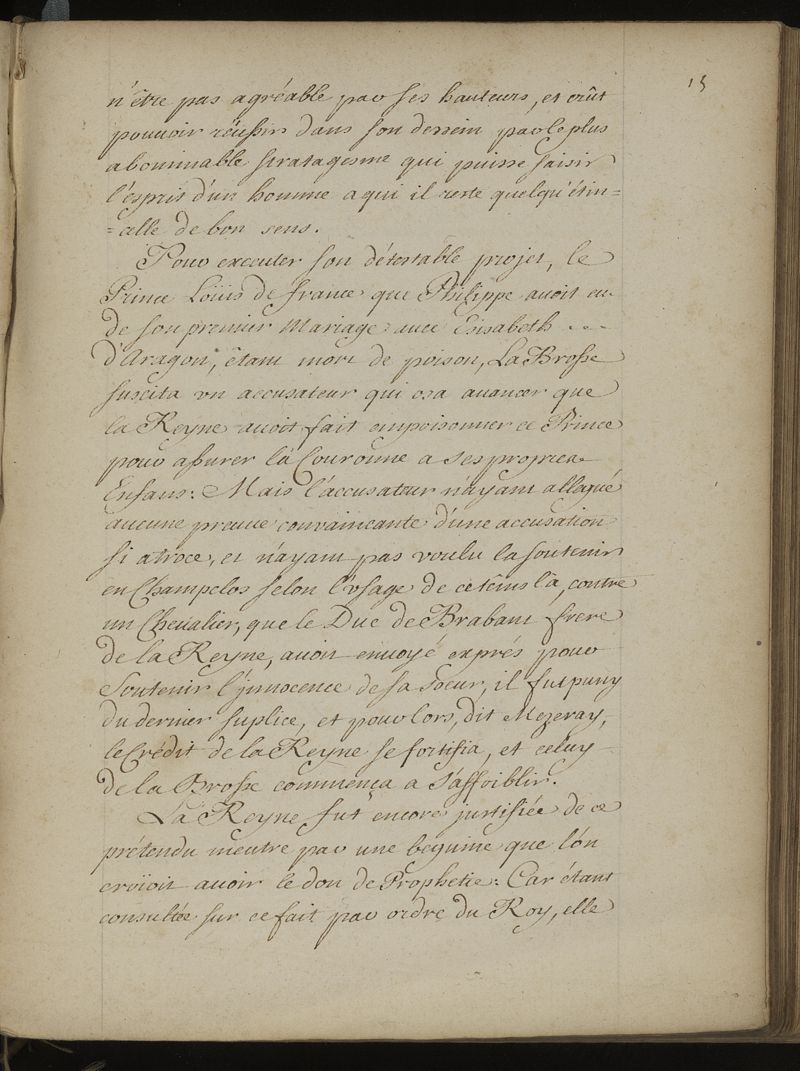 15
n'être pas agréable par ses hauteurs, et crût
pouuoir réussir dans son dessein par le plus
abominable stratagesme qui puisse saisir
l'esprit d'un homme a qui il reste quelqu'étin=
=celle de bon sens.
Pour executer son détestable projet, le
Prince Loüis de france que Philippe auoit eu
de son premier Mariage auec Elisabeth ---
d'Aragon, étant mort de poison, La Brosse
suscita vn accusateur qui osa auancer que
la Reyne auoit fait empoisonner ce Prince
pour assurer la Couronne a ses propres
Enfans: Mais l'accusateur n'ayant allegué
aucune preuue conuaincante d'une accusation
si atroce, et n'ayant pas voulu la soutenir
en Champclos selon l'vsage de ce tems là, contre
un Cheualier, que le Duc de Brabant frere
de la Reyne, auoit enuoyé exprés pour
Soutenir l'jnnocence de sa soeur, il fut puny
du dernier suplice, et pour lors, dit Mezeray,
le Crédit de la Reyne se fortifia, et celuy
de la Brosse commença a s'affoiblir.
La Reyne fut encore justifiée de ce
prétendu meutre par une beguine que l'on
croïoit auoir le don de Prophetie: Car étant
consultée sur ce fait par ordre du Roy, elle